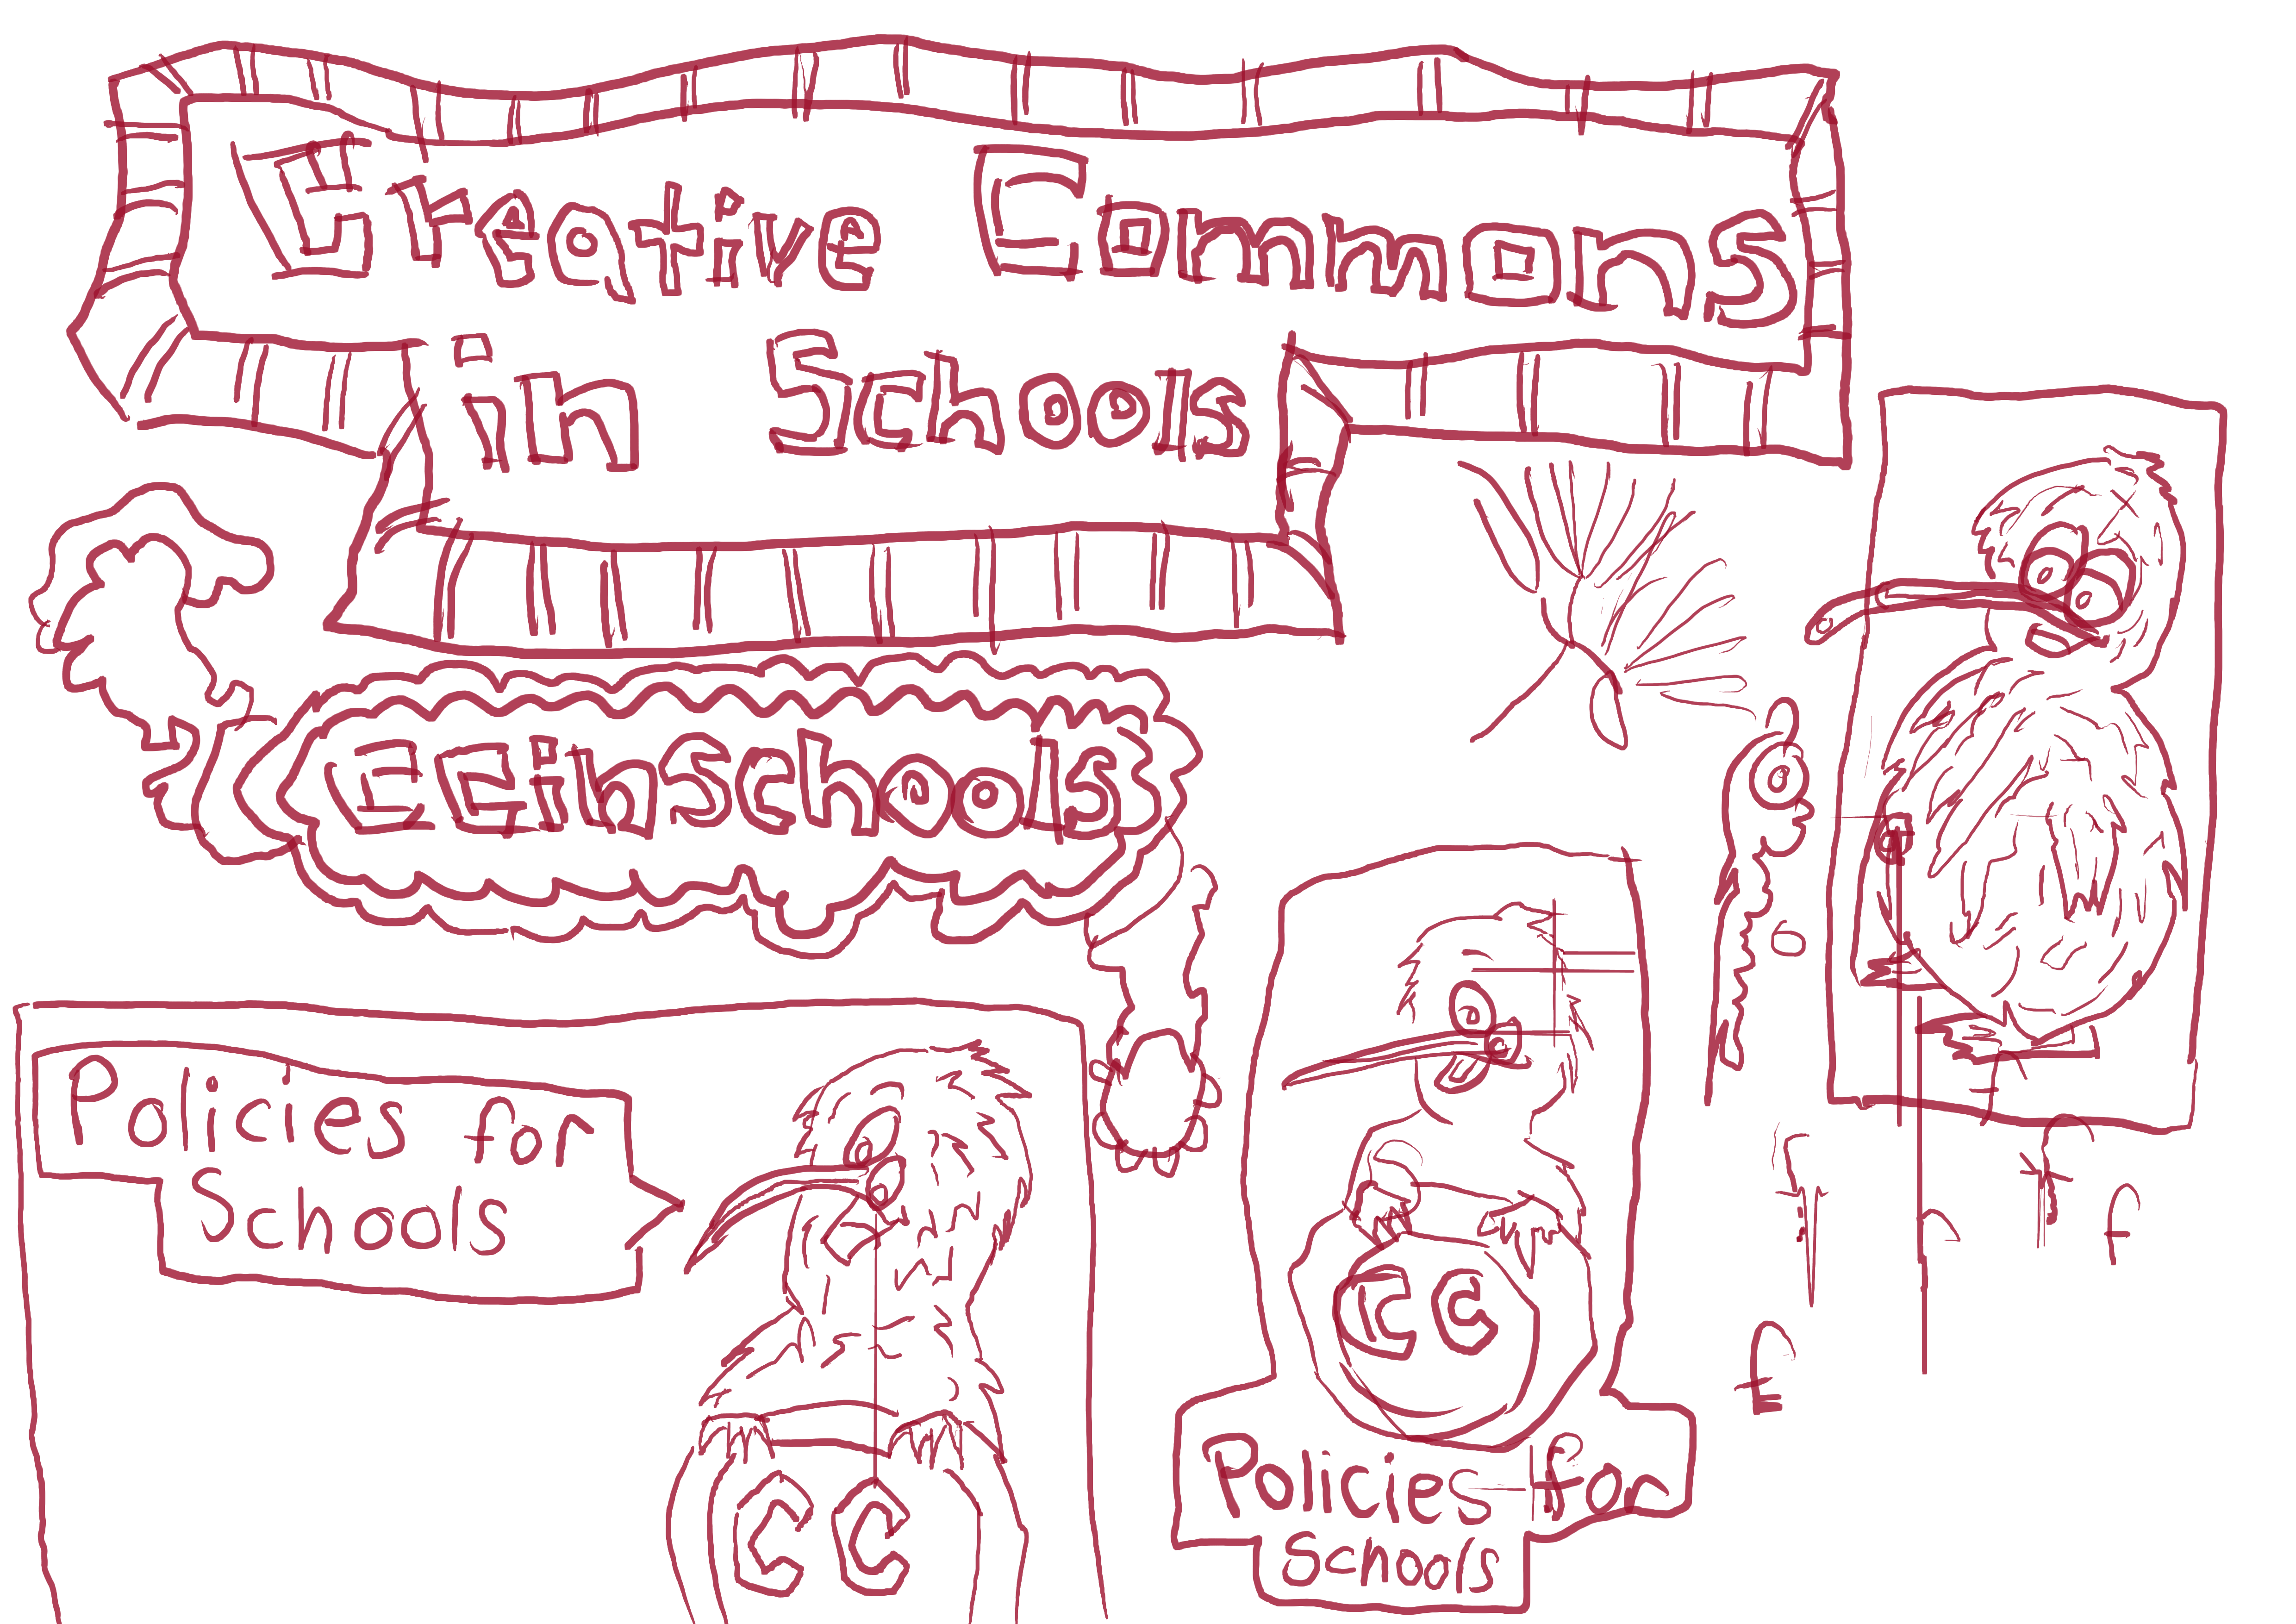 Creative Commons
in Schools
CCinschools
Policies for
Schools
CC
CC
Policies for
Schools
f
f
f